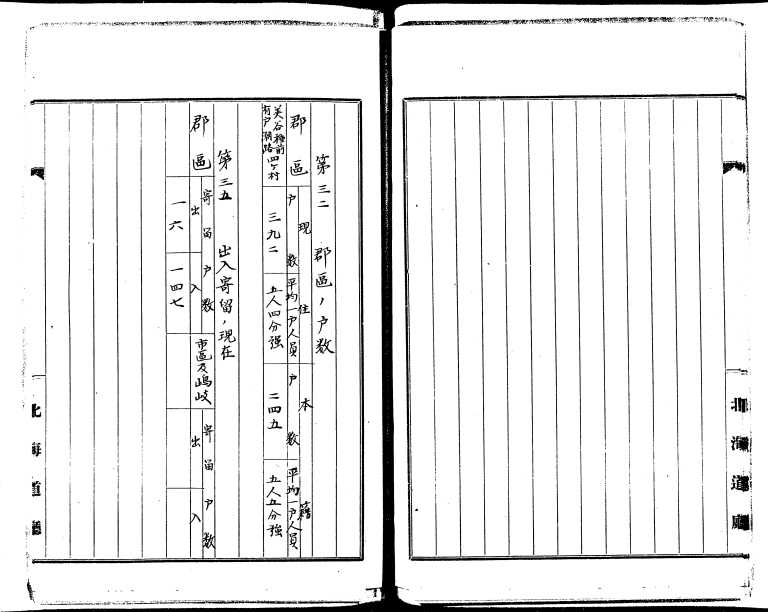 北海道廳
第三二 郡區ノ戸数
郡區
現住
本籍
戸数
平均一戸人員
戸数
平均一戸人員
四ヶ村
三九二
五人四分強
二四五
五人五分強
第三五 出入寄留ノ現在
郡區
寄留戸数
市區及嶋岐
寄留戸数
出
入
出
入
一六
一四七
北海道廳